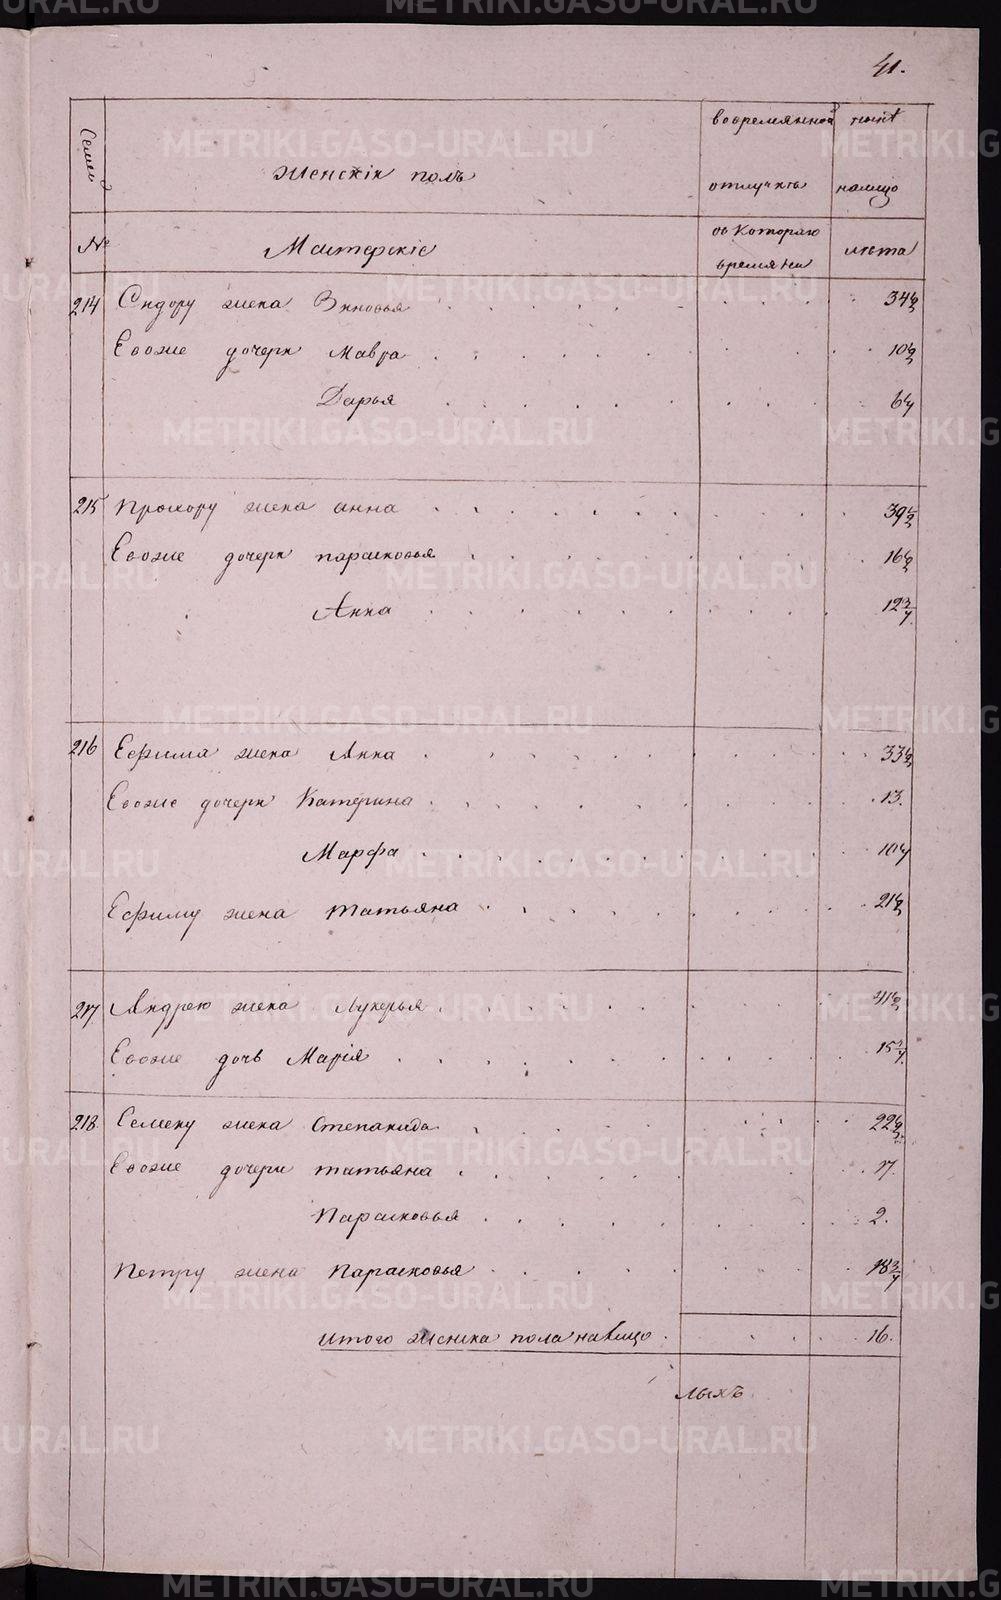 41.
Семей
Женскiй полъ
вовременной
отлучкѣ
нынѣ
налицо
№
Мастерскiе
съ Котораго
времяни
лѣта
214 Сидору жена Зиновья 34 1/2
Евоже дочери Мавра 10 1/2
Дарья 6 1/4
215 Прохору жена анна 39 1/2
Евоже дочери парасковья 16 1/2
Анна 12 3/4
216 Ефима жена Анна 33 1/2
Евоже дочери Катерина 13.
Марфа 10 1/4
Ефиму жена татьяна 21 1/2
217. Андрею жена Лукерья 41 1/2
Евоже дочь Марiя 15 3/4
218. Семену жена Степанида 22 1/2
Евоже дочери татьяна
Парасковья 2.
Петру жена Парасковья 18 3/4
итого женска пола налицо 16.
METRIKI.GASO-URAL.RU